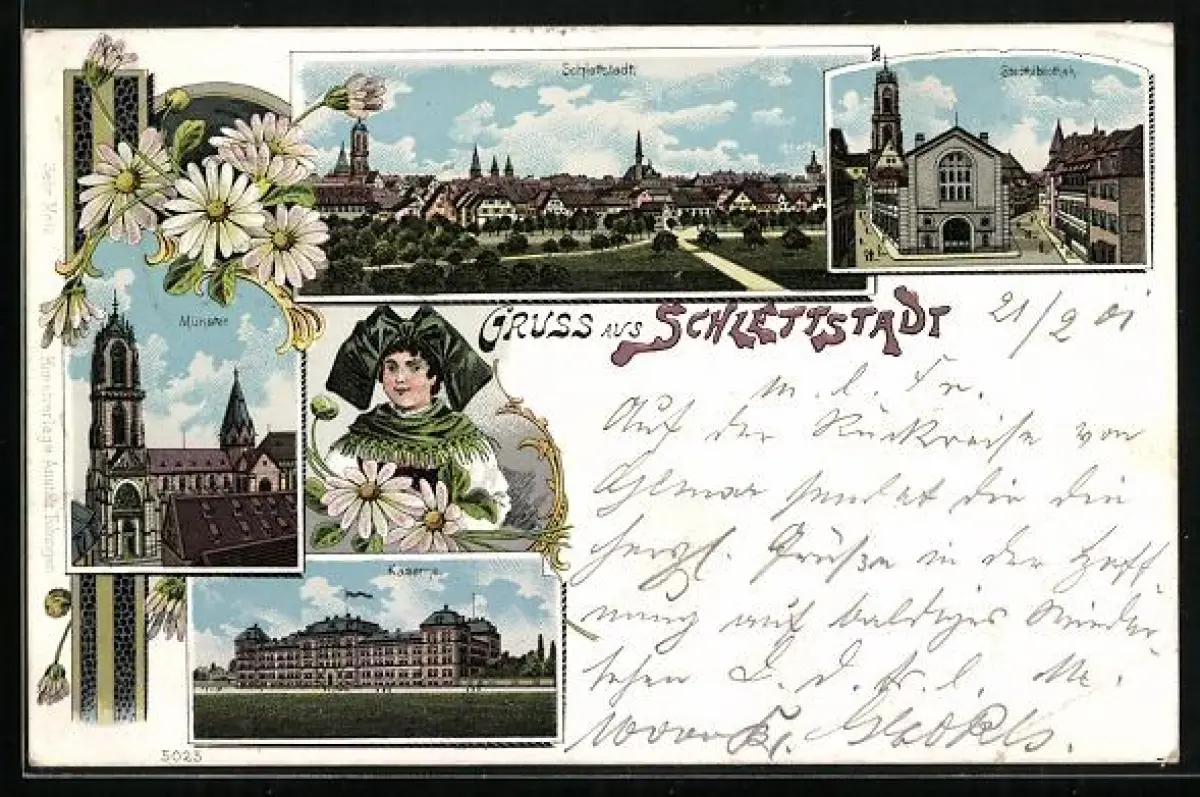 Schlettstadt
Stadtbibliothek
Münster
GRUSS AUS SCHLETTSTADT
21/2 01
m. l. Fr.
Auf der Rückreise von
Colmar sendet dir die
herzl. Grüße in der Hoff-
nung auf baldiges Wieder-
sehen D. d. tr. l. M.
Kaserne
5025